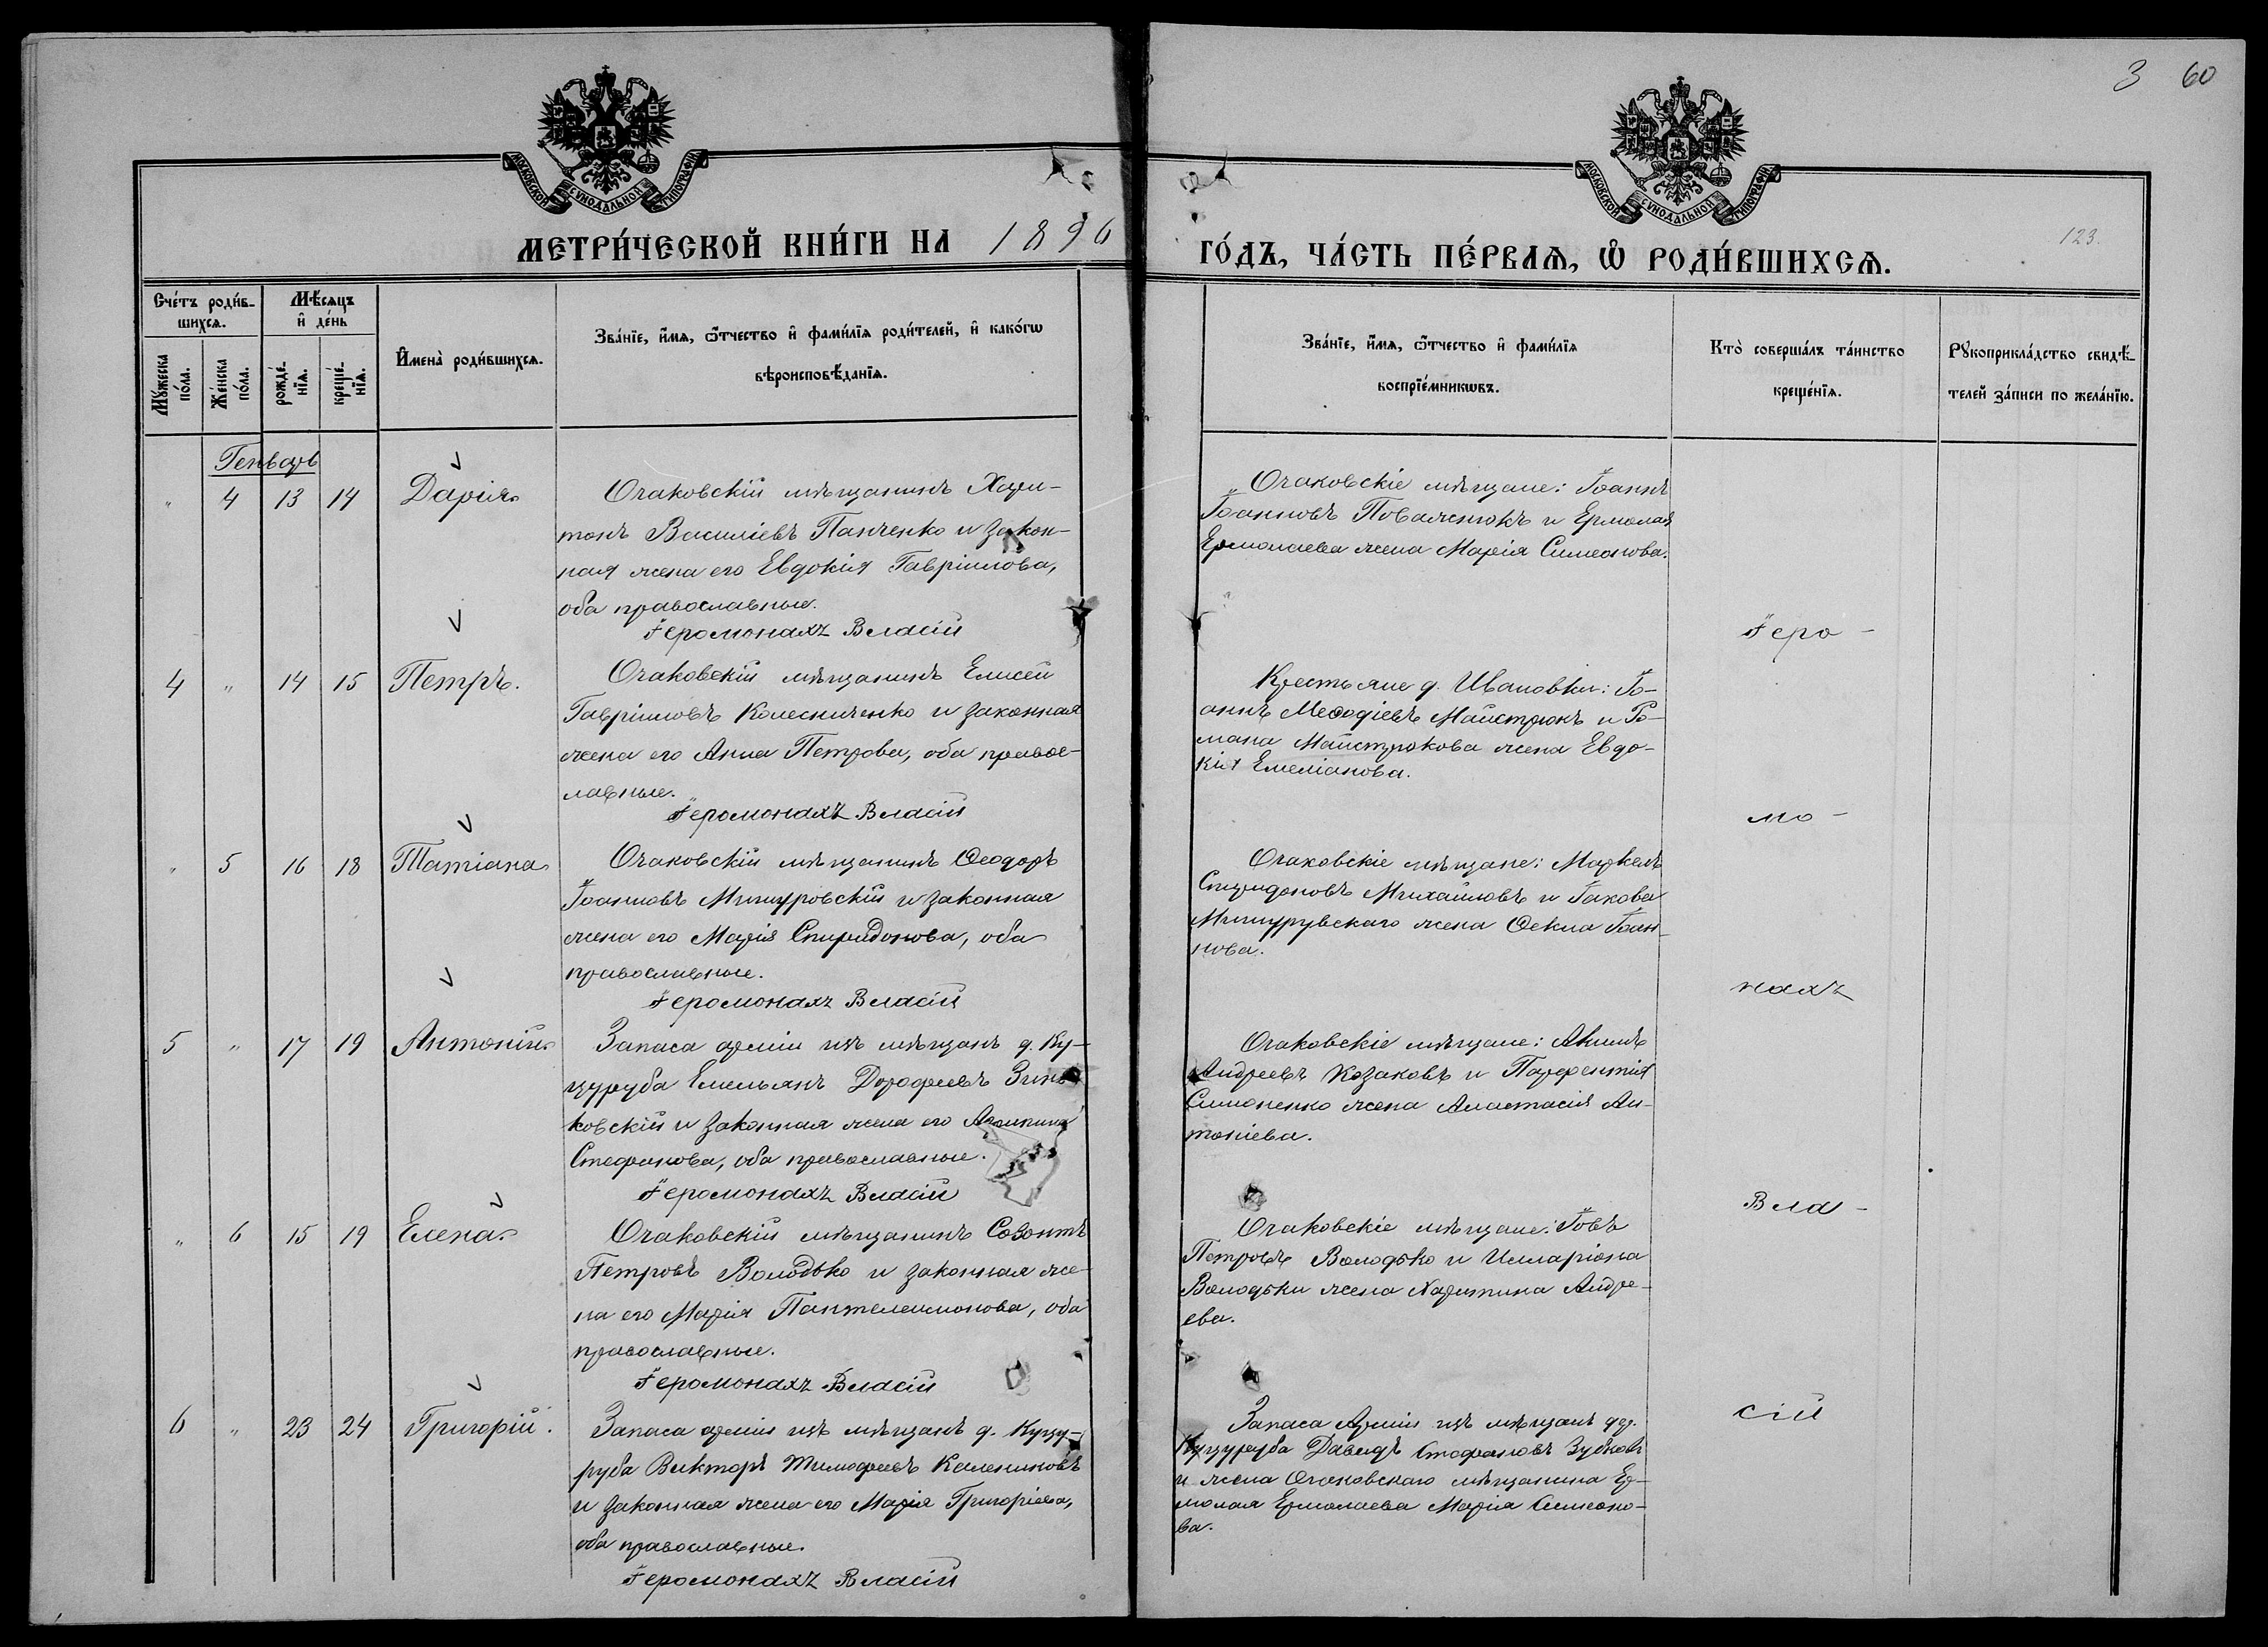 3 60
МОСКОВСКОЙ СѴНОДАЛЬНОЙ ТИПОГРАФІИ
МОСКОВСКОЙ СѴНОДАЛЬНОЙ ТИПОГРАФІИ
МЕТРИ́ЧЕСКОЙ КНИ́ГИ НА 1896
ГО́ДЪ, ЧА́СТЬ ПЕ́РВАѦ, Ѡ҆ РОДИ́ВШИХСѦ.
123.
Сче́тъ роди́в-
шихсѧ.
Мѣ́сѧцъ
и҆ де́нь
Мꙋ́жеска
по́ла.
Же́нска
по́ла.
рожде́-
нїѧ.
креще́-
нїѧ.
И҆мена̀ роди́вшихсѧ.
Зва́нїе, и҆́мѧ, ѻ҆́тчество и҆ фами́лїѧ роди́телей, и҆ како́гѡ
вѣроисповѣ́данїѧ.
Зва́нїе, и҆́мѧ, ѻ҆́тчество и҆ фами́лїѧ
воспрїе́мникѡвъ.
Кто̀ соверша́лъ та́инство
креще́нїѧ.
Рꙋкоприкла́дство свидѣ́-
телей за́писи по жела́нїю.
Генварь
" 4 13 14 Дарія.
Очаковскій мѣщанинъ Хари-
тонъ Василіевъ Панченко и закон-
ная жена его Евдокія Гавріилова,
оба православные.
Іеромонахъ Власій
Очаковскіе мѣщане: Іоаннъ
Іоанновъ Поваченокъ и Ермолая
Ермолаева жена Марія Симеонова.
Іеро-
4 " 14 15 Петръ.
Очаковскій мѣщанинъ Елисей
Гавріиловъ Колесниченко и законная
жена его Анна Петрова, оба правос-
лавные.
Іеромонахъ Власій
Крестьяне д. Ивановки: Іо-
аннъ Меѳодіевъ Майстрюкъ и Ро-
мана Майстрюкова жена Евдо-
кія Емеліанова.
мо-
" 5 16 18 Татіана
Очаковскій мѣщанинъ Ѳеодоръ
Іоанновъ Мишуровскій и законная
жена его Марія Спиридонова, оба
православные.
Іеромонахъ Власій
Очаковскіе мѣщане: Маркелъ
Спиридоновъ Михайловъ и Іакова
Мишурувскаго жена Ѳекла Іоан-
нова.
нахъ
5 " 17 19 Антоній
Запаса арміи изъ мѣщанъ д. Ку-
цуруба Емельянъ Дорофеевъ Зинь-
ковскій и законная жена его
Стефанова, оба православные.
Іеромонахъ Власій
Очаковскіе мѣщане: Акимъ
Андреевъ Козаковъ и Парфентія
Симоненко жена Анастасія Ан-
тоніева.
Вла-
" 6 15 19 Елена
Очаковскій мѣщанинъ Созонтъ
Петровъ Володько и законная же-
на его Марія Пантелеимонова, оба
православные.
Іеромонахъ Власій
Очаковскіе мѣщане: Іовъ
Петровъ Володько и Илларіона
Володьки жена Харитина Андре-
ева.
сій
6 " 23 24 Григорій.
Запаса арміи изъ мѣщанъ д. Куцу-
руба Викторъ Тимофеевъ Калениковъ
и законная жена его Марія Григоріева,
оба православные.
Іеромонахъ Власій
Запаса Арміи изъ мѣщанъ дер.
Куцуруба Давидъ Стефановъ Зубковъ
и жена Очаковскаго мѣщанина Ер-
молая Ермолаева Марія Симеоно-
ва.